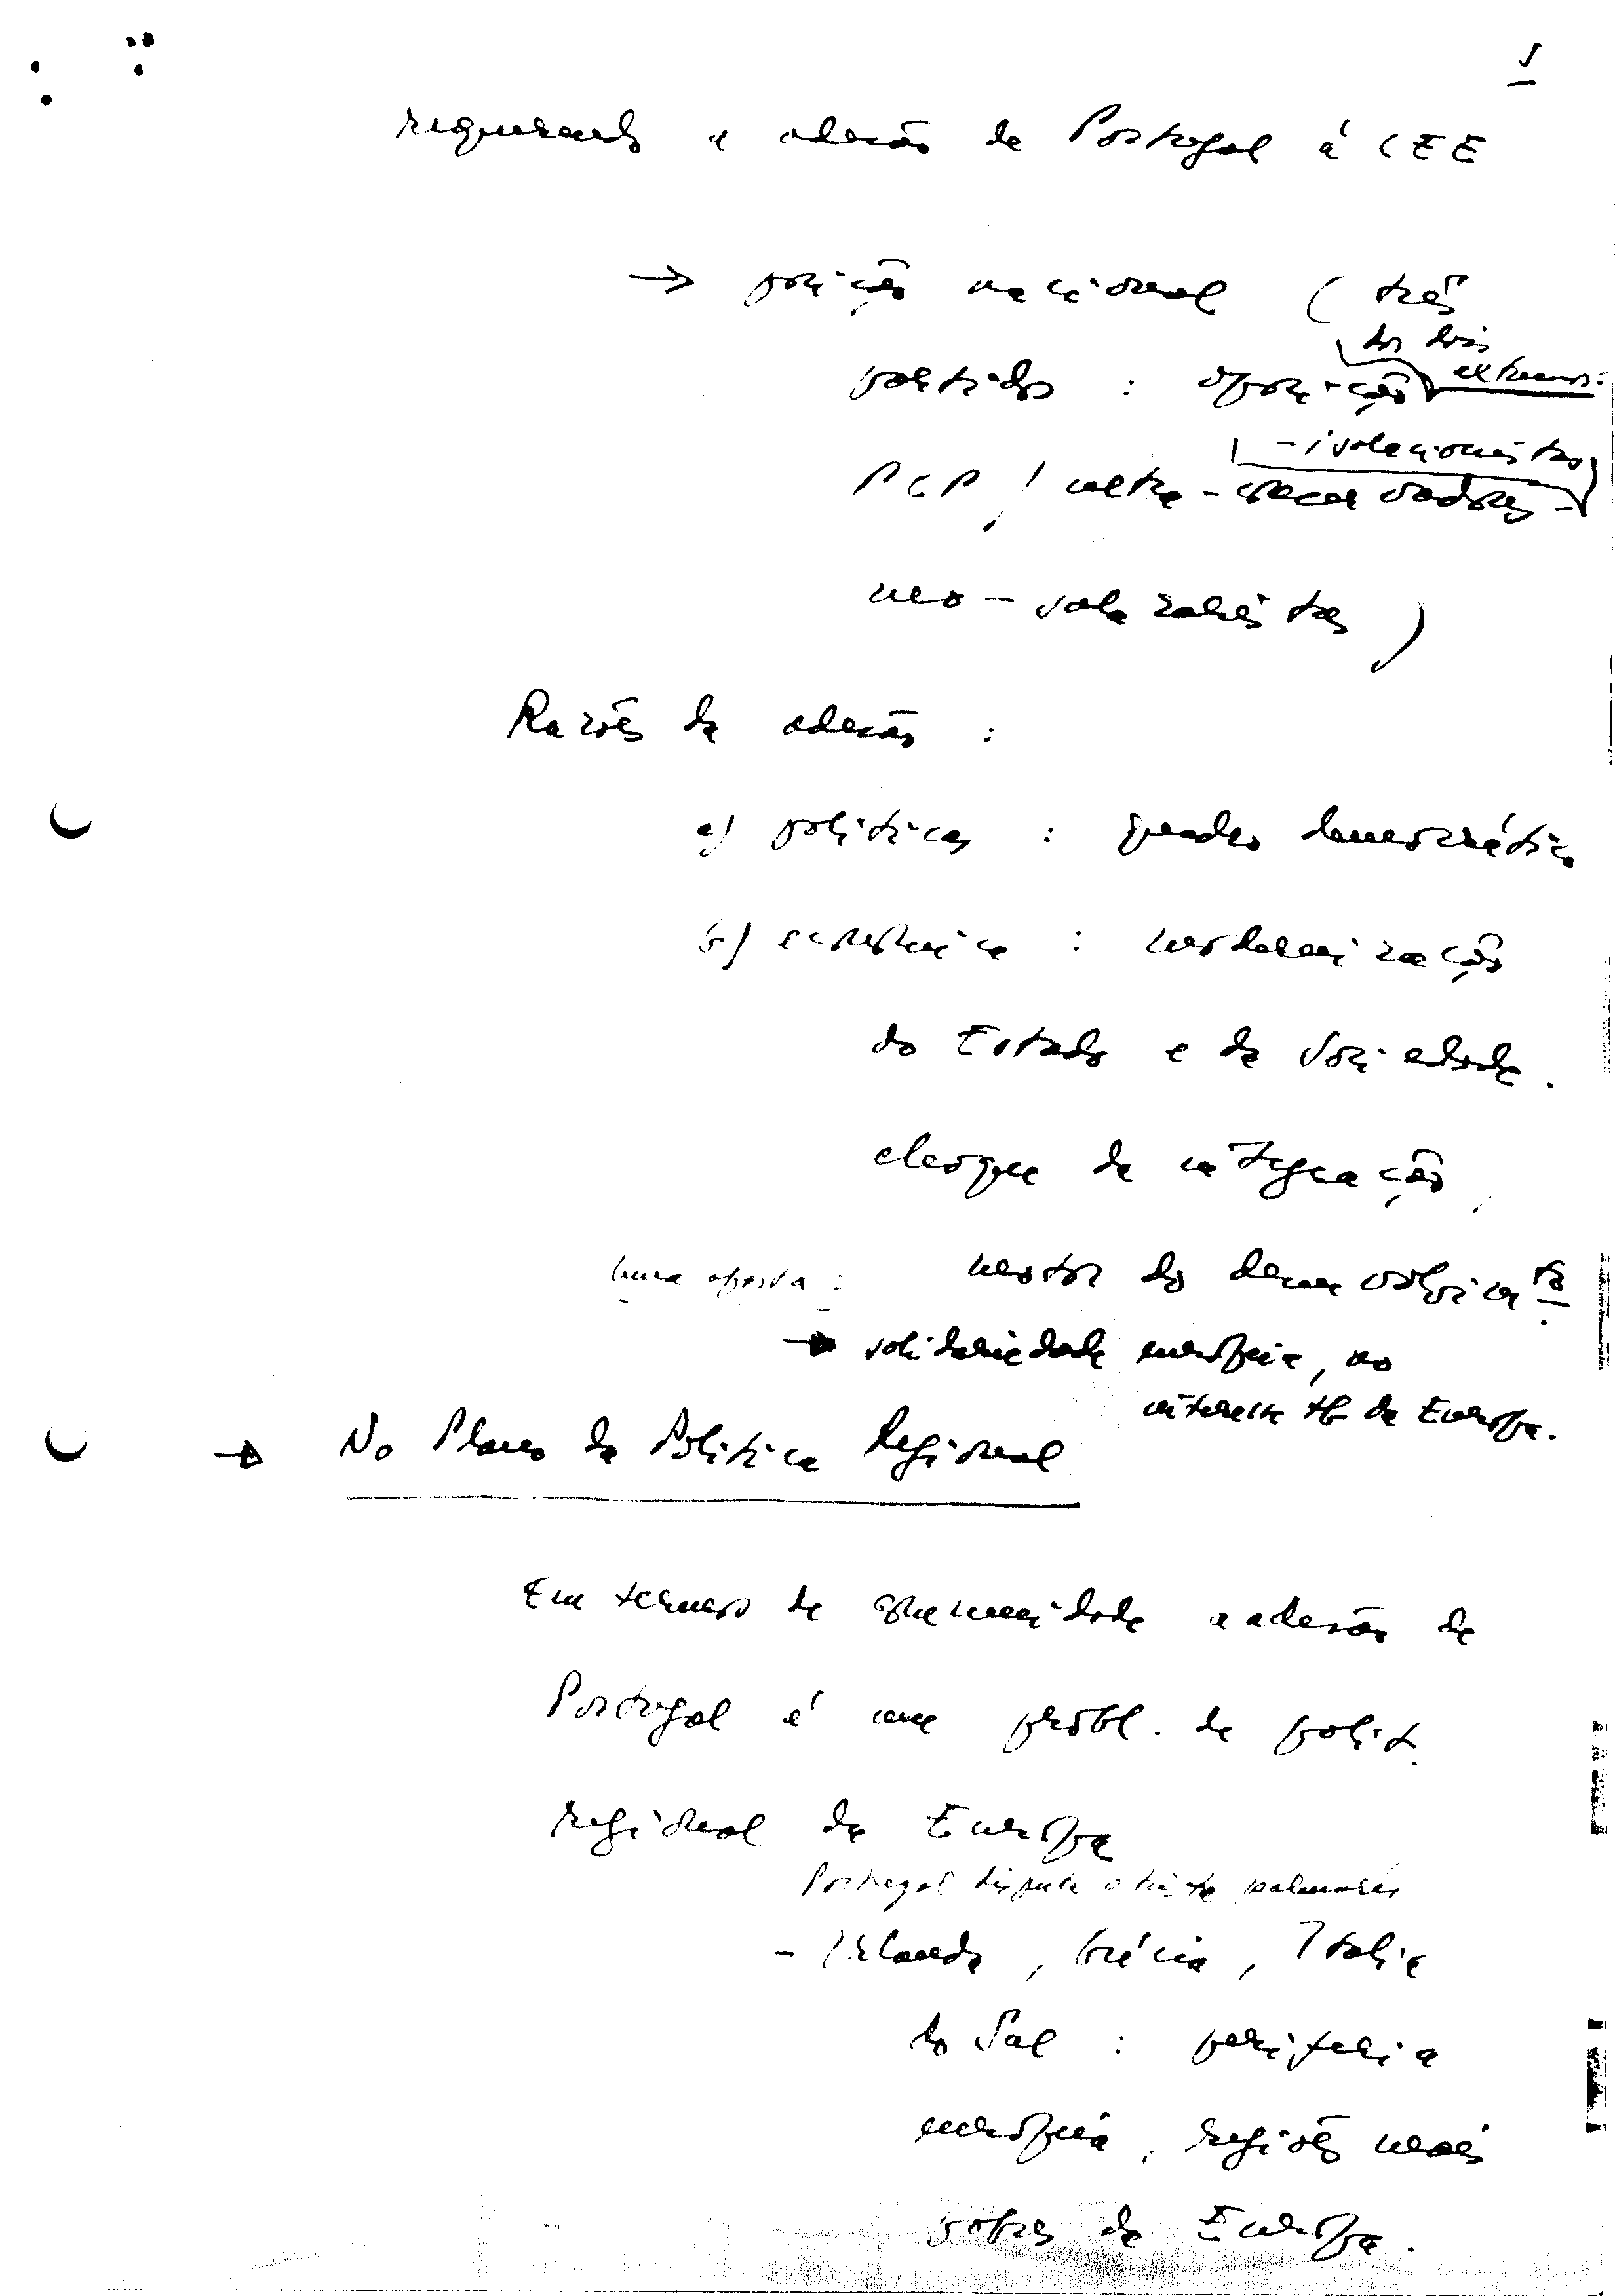 5
requerendo a adesão de Portugal à CEE
→ posição nacional (três
partidos : oposição dos dois extremos:
PCP / ultra-conservadores - isolacionistas -
neo-salazaristas)
Razões da adesão :
a) políticas : quadro democrático
b) económica : modernização
do Estado e da Sociedade.
choque de integração,
uma aposta : motor do desenvolvim to.
→ solidariedade europeia, no
interesse tb da Europa.
→ No Plano da Política Regional
Em termos de comunidade a adesão de
Portugal é um probl. de polít.
regional da Europa
Portugal disputa o triste palmarés
- Irlanda, Grécia, Itália
do Sul : periferia
europeia, regiões mais
pobres da Europa.